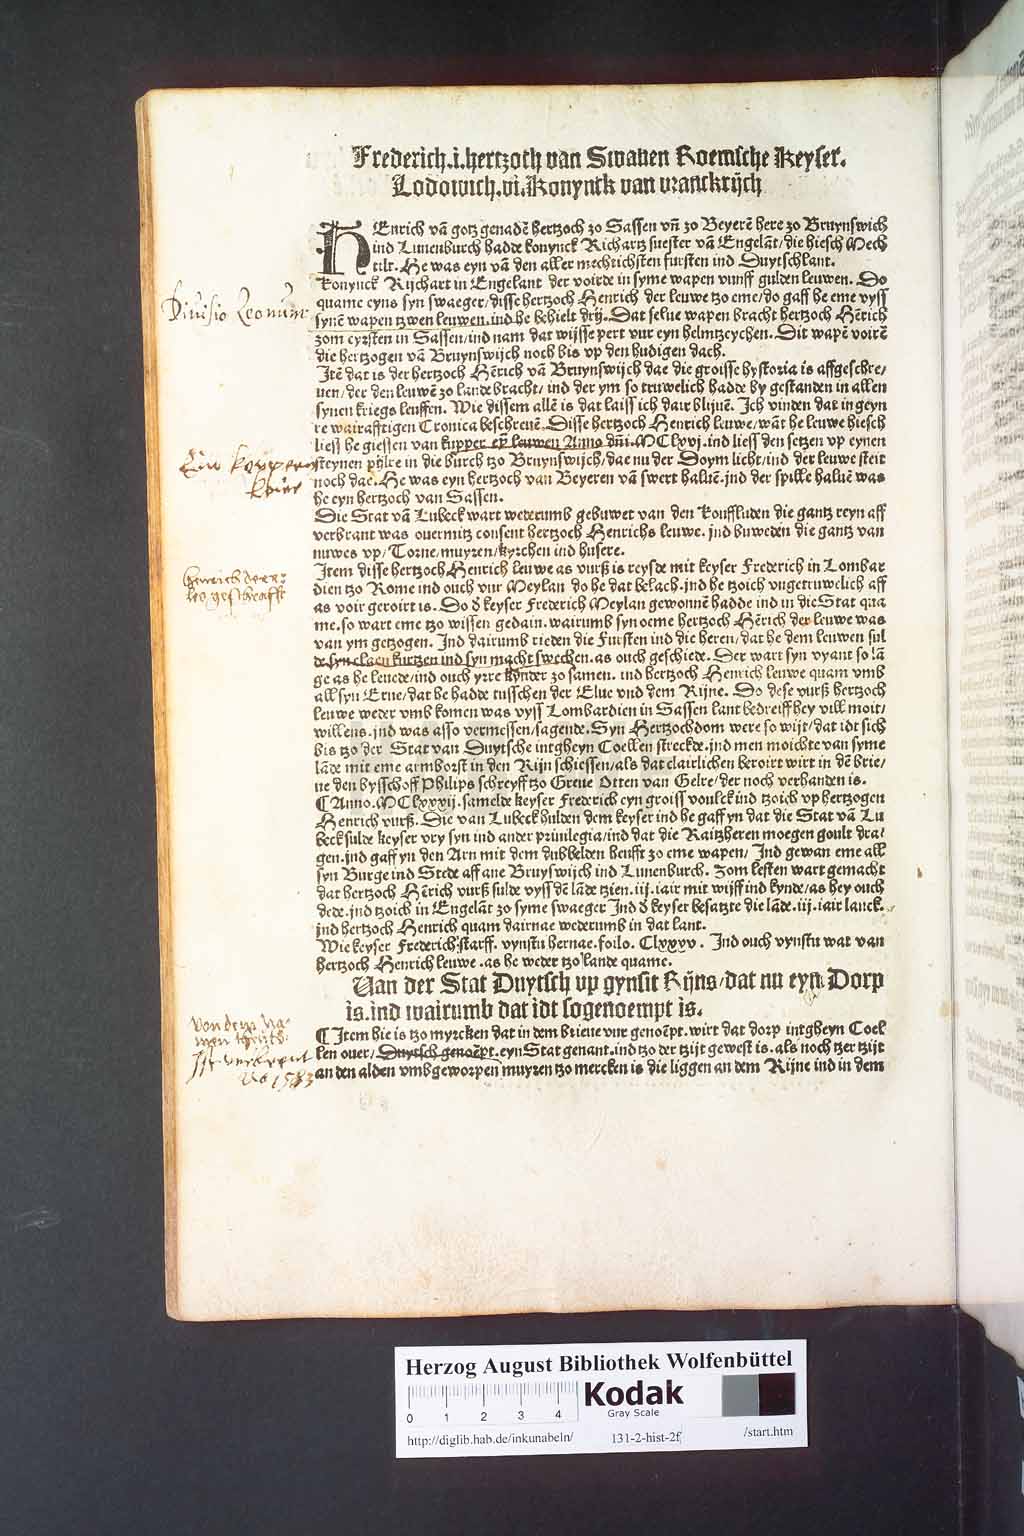 Frederich.i.hertzoth van Swaven Roemsche Keyser.
Lodowich.vi.Konynck van vranckrijch
HEnrich vā gotz genadē hertzoch zo Sassen vn̄ zo Beyerē here zo Bruynswich
ind Lunenburch hadde konynck Richartz suester vā Engelāt/die hiesch Mech
tilt. He was eyn vā den aller mechtichsten fursten ind Duytschlant.
Konynck Rijchart in Engelant der voirde in syme wapen vunff gulden leuwen. Do
quame eyns syn swaeger/disse hertzoch Henrich der leuwe tzo eme/do gaff he eme vyss
Divisio Leonum
synē wapen tzwen leuwen.ind he behielt drij. Dat selue wapen bracht hertzoch Hērich
zom eyrsten in Sassen/ind nam dat wijsse pert vur eyn helmtzeychen. Dit wapē voirē
die hertzogen vā Bruynswijch noch bis vp den hudigen dach.
Itē dat is der hertzoch Hērich vā Bruynswijch dae die groisse hystoria is affgeschre/
uen/der den leuwē zo lande bracht/ ind der ym so truwelich hadde by gestanden in allen
synen kriegs leuffen. Wie dissem allē is dat laiss ich dair blijuē. Ich vinden dat in geyn
re wairafftigen Cronica beschreuē. Disse hertzoch Henrich leuwe/wāt he leuwe hiesch
liess he giessen van kupper eyn leuwen Anno dn̄i.MClxvj.ind liess den setzen vp eynen
Ein koppern
steynen pylre in die burch tzo Bruynswijch/dae nu der Doym licht/ind der leuwe steit
noch dae. He was eyn hertzoch van Beyeren vā swert haluē.jnd der spille haluē was
he eyn hertzoch van Sassen.
Die Stat vā Lubeck wart wederumb gebuwet van den Kouffluden die gantz reyn aff
verbrant was ouermitz consent hertzoch Henrichs leuwe. jnd buweden die gantz van
nuwes vp/Torne/muyren/kyrchen ind husere.
Item disse hertzoch Henrich leuwe as vurß is reysde mit keyser Frederich in Lombar
dien tzo Rome ind ouch vur Meylan do he dat belach.jnd he tzoich vngetruwelich aff
as voir geroirt is. Do d̄ keyser Frederich Meylan gewonnē hadde ind in die Stat qua
me.so wart eme tzo wissen gedain.wairumb syn oeme hertzoch Hērich der leuwe was
van ym getzogen. Ind dairumb rieden die Fursten ind die heren/dat he dem leuwen sul
de syne laen kurtzen ind syn macht swechen.as ouch geschiede. Der wart syn vyant so lā
ge as he leuede/ind ouch yrre kynder zo samen. ind hertzoch Henrich leuwe quam vmb
all syn Erue/dat he hadde tusschen der Elue vnd dem Rijne. Do dese vurß hertzoch
leuwe weder vmb komen was vyss Lombardien in Sassen lant bedreiff hey vill moit/
willens.jnd was asso vermessen/sagende. Syn Hertzochdom were so wijt/dat idt sich
bis tzo der Stat van Duytsche intgheyn Coellen streckde.jnd men moichte van syme
lāde mit eme armborst in den Rijn schiessen/als dat clairlichen beroirt wirt in dē brie/
ue den bysschoff Philips schreyff tzo Greue Otten van Gelre/der noch verhanden is.
¶ Anno.MClxxxij.samelde keyser Frederich eyn groiss voulck ind tzoich vp hertzogen
Henrich vurß. Die van Lubeck hulden dem keyser ind he gaff yn dat die Stat vā Lu
beck sulde keyser vry syn ind ander priuilegia/ind dat die Raitzheren moegen goult dra/
gen.jnd gaff yn den Arn mit dem dubbelden heufft zo eme wapen/ Ind gewan eme all
syn Burge ind Stede aff ane Bruyswijch ind Lunenburch. Zom lesten wart gemacht
dat hertzoch Hērich vurß sulde vyss dē lāde tzien.iij.iair mit wijff ind kynde/as hey ouch
dede.jnd tzoich in Engelāt zo syme swaeger Ind d̄ keyser besatzte die lāde.iij.iair lanck.
jnd hertzoch Henrich quam dairnae wederumb in dat lant.
Wie keyser Frederich starff. vynstu hernae.foilo. Clxxxv. Ind ouch vynstu wat van
hertzoch Henrich leuwe.as he weder tzo lande quame.
Van der Stat Duytsch vp gynsit Rijns/dat nu eyn Dorp
is.ind wairumb dat idt sogenoempt is.
¶ Item hie is tzo myrcken dat in dem brieue vur genoēpt.wirt dat dorp intgheyn Coel
len ouer/Duytsch genoēpt.eyn Stat genant.ind tzo der tzijt gewest is.als noch tzer tzijt
an den alden vmbgeworpen muyren tzo mercken is die liggen an dem Rijne ind in dem
1583
Herzog August Bibliothek Wolfenbüttel
0 1 2 3 4
Kodak
Gray Scale
http://diglib.hab.de/inkunabeln/ 131-2-hist-2f /start.htm